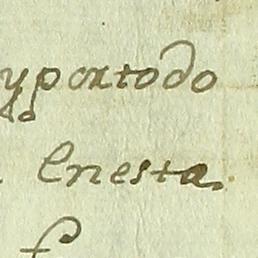 yportodo
do
Enesta